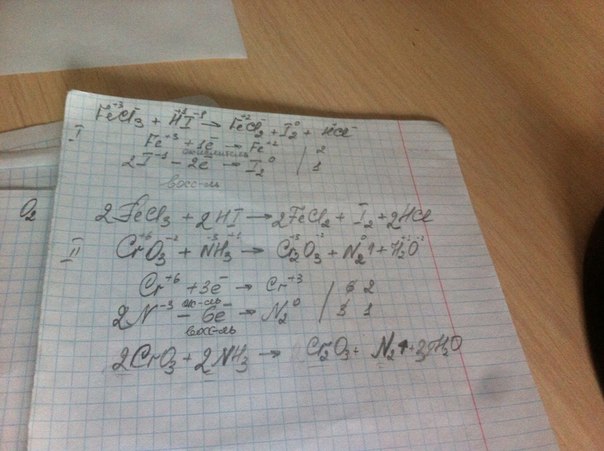 FeCl₃⁺³ + H⁺¹I⁻¹ → Fe⁺²Cl₂ + I₂⁰ + HCl
I
Fe⁺³ + 1e⁻ → Fe⁺² | 2
окислитель
2I⁻¹ − 2e⁻ → I₂⁰ | 1
восс-ль
O₂
2FeCl₃ + 2HI → 2FeCl₂ + I₂ + 2HCl
II
Cr⁺⁶O₃⁻² + N⁻³H₃⁺¹ → Cr₂⁺³O₃⁻² + N₂⁰↑ + H₂O
Cr⁺⁶ + 3e⁻ → Cr⁺³ | 6 2
ок-ль
2N⁻³ − 6e⁻ → N₂⁰ | 3 1
восс-ль
2CrO₃ + 2NH₃ → Cr₂O₃ + N₂↑ + 3H₂O